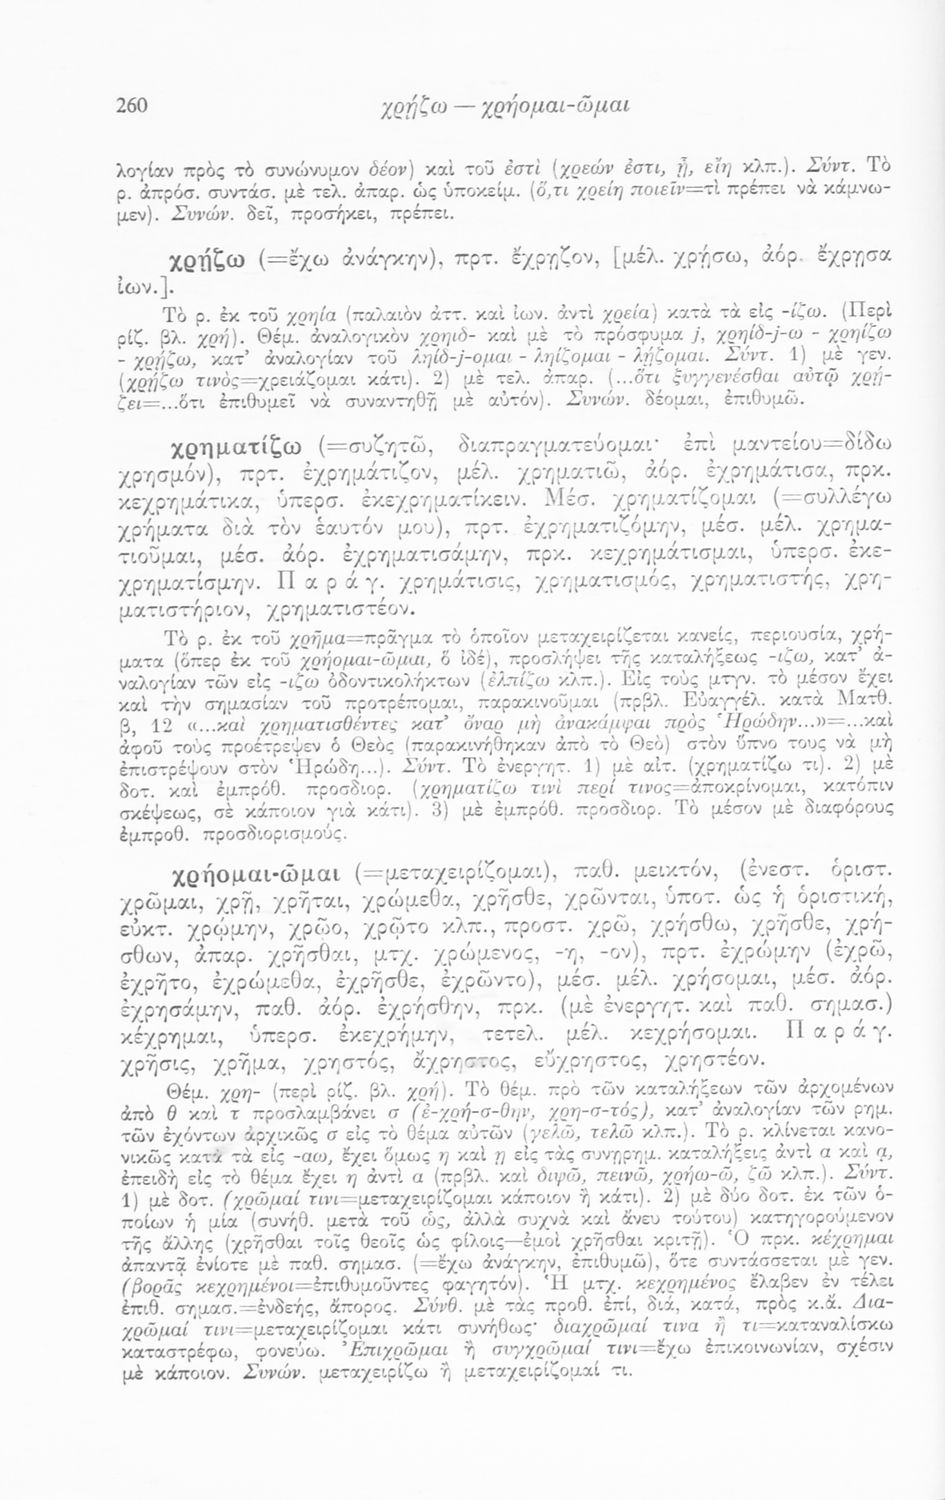 260 χρῄζω — χρήομαι-ῶμαι
λογίαν πρὸς τὸ συνώνυμον δέον) καὶ τοῦ ἐστὶ (χρεών ἐστι, ᾖ, εἴη κλπ.). Σύντ. Τὸ
ρ. ἀπρόσ. συντάσ. μὲ τελ. ἀπαρ. ὡς ὑποκείμ. (ὅ,τι χρείη ποιεῖν=τὶ πρέπει νὰ κάμνω-
μεν). Συνών. δεῖ, προσήκει, πρέπει.
χρῄζω (=ἔχω ἀνάγκην), πρτ. ἔχρῃζον, [μέλ. χρῄσω, ἀόρ. ἔχρῃσα
ἰων.].
Τὸ ρ. ἐκ τοῦ χρηία (παλαιὸν ἀττ. καὶ ἰων. ἀντὶ χρεία) κατὰ τὰ εἰς -ίζω. (Περὶ
ρίζ. βλ. χρή). Θέμ. ἀναλογικὸν χρηιδ- καὶ μὲ τὸ πρόσφυμα j, χρηίδ-j-ω - χρηίζω
- χρῄζω, κατ’ ἀναλογίαν τοῦ ληίδ-j-ομαι - ληίζομαι - λῄζομαι. Σύντ. 1) μὲ γεν.
(χρῄζω τινὸς=χρειάζομαι κάτι). 2) μὲ τελ. ἀπαρ. (...ὅτι ξυγγενέσθαι αὐτῷ χρῄ-
ζει=...ὅτι ἐπιθυμεῖ νὰ συναντηθῇ μὲ αὐτόν). Συνών. δέομαι, ἐπιθυμῶ.
χρηματίζω (=συζητῶ, διαπραγματεύομαι· ἐπὶ μαντείου=δίδω
χρησμόν), πρτ. ἐχρημάτιζον, μέλ. χρηματιῶ, ἀόρ. ἐχρημάτισα, πρκ.
κεχρημάτικα, ὑπερσ. ἐκεχρηματίκειν. Μέσ. χρηματίζομαι (=συλλέγω
χρήματα διὰ τὸν ἑαυτόν μου), πρτ. ἐχρηματιζόμην, μέσ. μέλ. χρημα-
τιοῦμαι, μέσ. ἀόρ. ἐχρηματισάμην, πρκ. κεχρημάτισμαι, ὑπερσ. ἐκε-
χρηματίσμην. Παράγ. χρημάτισις, χρηματισμός, χρηματιστής, χρη-
ματιστήριον, χρηματιστέον.
Τὸ ρ. ἐκ τοῦ χρῆμα=πρᾶγμα τὸ ὁποῖον μεταχειρίζεται κανείς, περιουσία, χρή-
ματα (ὅπερ ἐκ τοῦ χρήομαι-ῶμαι, ὃ ἰδέ), προσλήψει τῆς καταλήξεως -ιζω, κατ’ ἀ-
ναλογίαν τῶν εἰς -ιζω ὀδοντικολήκτων (ἐλπίζω κλπ.). Εἰς τοὺς μτγν. τὸ μέσον ἔχει
καὶ τὴν σημασίαν τοῦ προτρέπομαι, παρακινοῦμαι (πρβλ. Εὐαγγέλ. κατὰ Ματθ.
β, 12 «...καὶ χρηματισθέντες κατ’ ὄναρ μὴ ἀνακάμψαι πρὸς Ἡρώδην...»=...καὶ
ἀφοῦ τοὺς προέτρεψεν ὁ Θεὸς (παρακινήθηκαν ἀπὸ τὸ Θεὸ) στὸν ὕπνο τους νὰ μὴ
ἐπιστρέψουν στὸν Ἡρώδη...). Σύντ. Τὸ ἐνεργητ. 1) μὲ αἰτ. (χρηματίζω τι). 2) μὲ
δοτ. καὶ ἐμπρόθ. προσδιορ. (χρηματίζω τινὶ περί τινος=ἀποκρίνομαι, κατόπιν
σκέψεως, σὲ κάποιον γιὰ κάτι). 3) μὲ ἐμπρόθ. προσδιορ. Τὸ μέσον μὲ διαφόρους
ἐμπροθ. προσδιορισμούς.
χρήομαι-ῶμαι (=μεταχειρίζομαι), παθ. μεικτόν, (ἐνεστ. ὁριστ.
χρῶμαι, χρῇ, χρῆται, χρώμεθα, χρῆσθε, χρῶνται, ὑποτ. ὡς ἡ ὁριστική,
εὐκτ. χρῴμην, χρῷο, χρῷτο κλπ., προστ. χρῶ, χρήσθω, χρῆσθε, χρή-
σθων, ἀπαρ. χρῆσθαι, μτχ. χρώμενος, -η, -ον), πρτ. ἐχρώμην (ἐχρῶ,
ἐχρῆτο, ἐχρώμεθα, ἐχρῆσθε, ἐχρῶντο), μέσ. μέλ. χρήσομαι, μέσ. ἀόρ.
ἐχρησάμην, παθ. ἀόρ. ἐχρήσθην, πρκ. (μὲ ἐνεργητ. καὶ παθ. σημασ.)
κέχρημαι, ὑπερσ. ἐκεχρήμην, τετελ. μέλ. κεχρήσομαι. Παράγ.
χρῆσις, χρῆμα, χρηστός, ἄχρηστος, εὔχρηστος, χρηστέον.
Θέμ. χρη- (περὶ ρίζ. βλ. χρή). Τὸ θέμ. πρὸ τῶν καταλήξεων τῶν ἀρχομένων
ἀπὸ θ καὶ τ προσλαμβάνει σ (ἐ-χρή-σ-θην, χρη-σ-τός), κατ’ ἀναλογίαν τῶν ρημ.
τῶν ἐχόντων ἀρχικῶς σ εἰς τὸ θέμα αὐτῶν (γελῶ, τελῶ κλπ.). Τὸ ρ. κλίνεται κανο-
νικῶς κατὰ τὰ εἰς -αω, ἔχει ὅμως η καὶ ῃ εἰς τὰς συνῃρημ. καταλήξεις ἀντὶ α καὶ ᾳ,
ἐπειδὴ εἰς τὸ θέμα ἔχει η ἀντὶ α (πρβλ. καὶ διψῶ, πεινῶ, χρήω-ῶ, ζῶ κλπ.). Σύντ.
1) μὲ δοτ. (χρῶμαί τινι=μεταχειρίζομαι κάποιον ἢ κάτι). 2) μὲ δύο δοτ. ἐκ τῶν ὁ-
ποίων ἡ μία (συνήθ. μετὰ τοῦ ὡς, ἀλλὰ συχνὰ καὶ ἄνευ τούτου) κατηγορούμενον
τῆς ἄλλης (χρῆσθαι τοῖς θεοῖς ὡς φίλοις—ἐμοὶ χρῆσθαι κριτῇ). Ὁ πρκ. κέχρημαι
ἀπαντᾷ ἐνίοτε μὲ παθ. σημασ. (=ἔχω ἀνάγκην, ἐπιθυμῶ), ὅτε συντάσσεται μὲ γεν.
(βορᾶς κεχρημένοι=ἐπιθυμοῦντες φαγητόν). Ἡ μτχ. κεχρημένος ἔλαβεν ἐν τέλει
ἐπιθ. σημασ.=ἐνδεής, ἄπορος. Σύνθ. μὲ τὰς προθ. ἐπί, διά, κατά, πρὸς κ.ἄ. Δια-
χρῶμαί τινι=μεταχειρίζομαι κάτι συνήθως· διαχρῶμαί τινα ἤ τι=καταναλίσκω
καταστρέφω, φονεύω. Ἐπιχρῶμαι ἢ συγχρῶμαί τινι=ἔχω ἐπικοινωνίαν, σχέσιν
μὲ κάποιον. Συνών. μεταχειρίζω ἢ μεταχειρίζομαί τι.